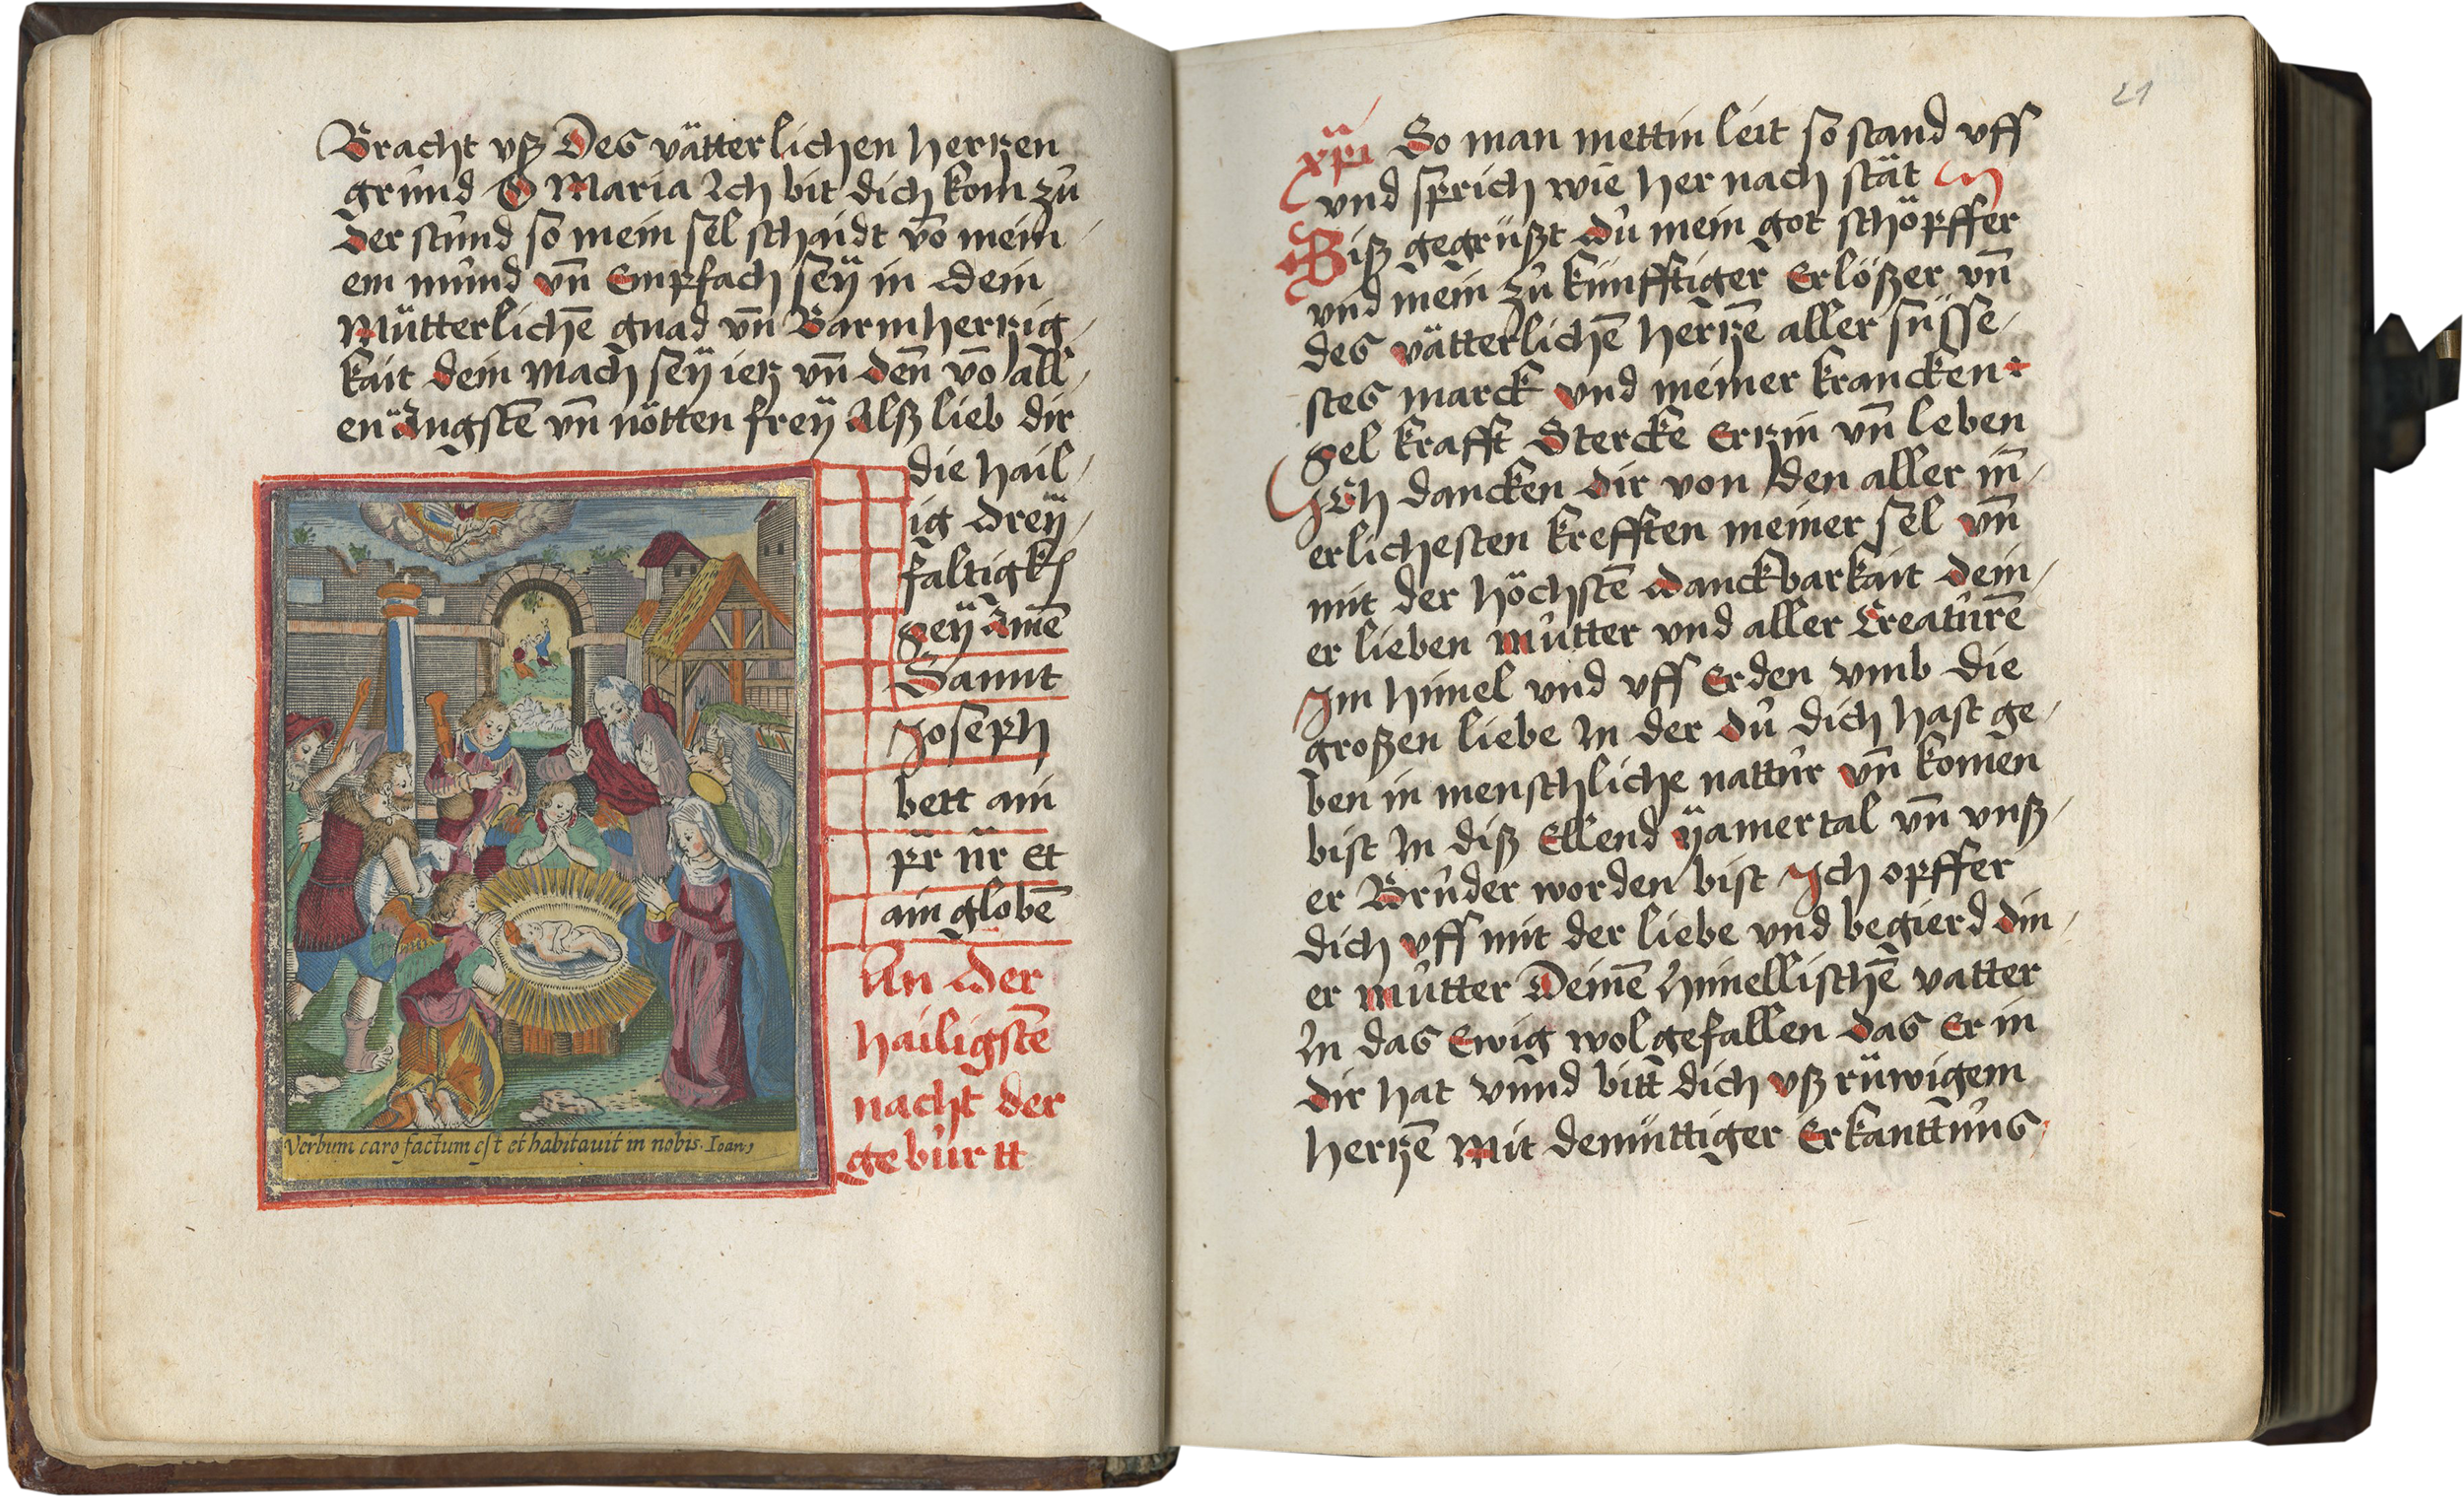 Bracht vß Des vätterlichen hertzen
grůnd O Maria Ich bit dich kom zů
der stůnd so mein sel schaidt vō mein
em můnd vn̄ Empfach seÿ in dein
Mütterlichē gnad vn̄ Barmhertzig
kait dein mach seÿ ietz vn̄ den̄ vō all
en Ängstē vn̄ nötten freÿ Alß lieb dir
die hail
ig dreÿ
faltigk
seÿ Amē
Sannt
Joseph
bett ain
pr̄ nr̄ et
ain globē
An der
hailigstē
nacht der
gebůrtt
Verbum caro factum est et habitavit in nobis. Ioan
21
xp̄i So man mettin leit so stand vff
vnd sprich wie her nach stät
Biß gegrüßt dů mein got schöpffer
vnd mein zů künfftiger Erlößer vn̄
des vätterlichē hertzē aller süsse
stes marck vnd meiner krancken
sel krafft Stercke Ertzin vn̄ leben
Ich dancken dir von den aller in̄
erlichesten krefften meiner sel vn̄
mit der höchstē danckbarkait dein
er lieben můtter vnd aller Creatůrē
Jm him̄el vnd vff Erden vmb die
großen liebe In der dů dich hast ge
ben in menschliche nattůr vn̄ komen
bist In diß Ellend ÿamertal vn̄ vnß
er Brůder worden bist Jch opffer
dich vff mit der liebe vnd begierd din
er můtter Deinē himellischē vatter
In das Ewig wolgefallen das Er in
dir hat vnnd bitt dich vß rüwigem
hertzē Mit demüttiger Erkanttnůs